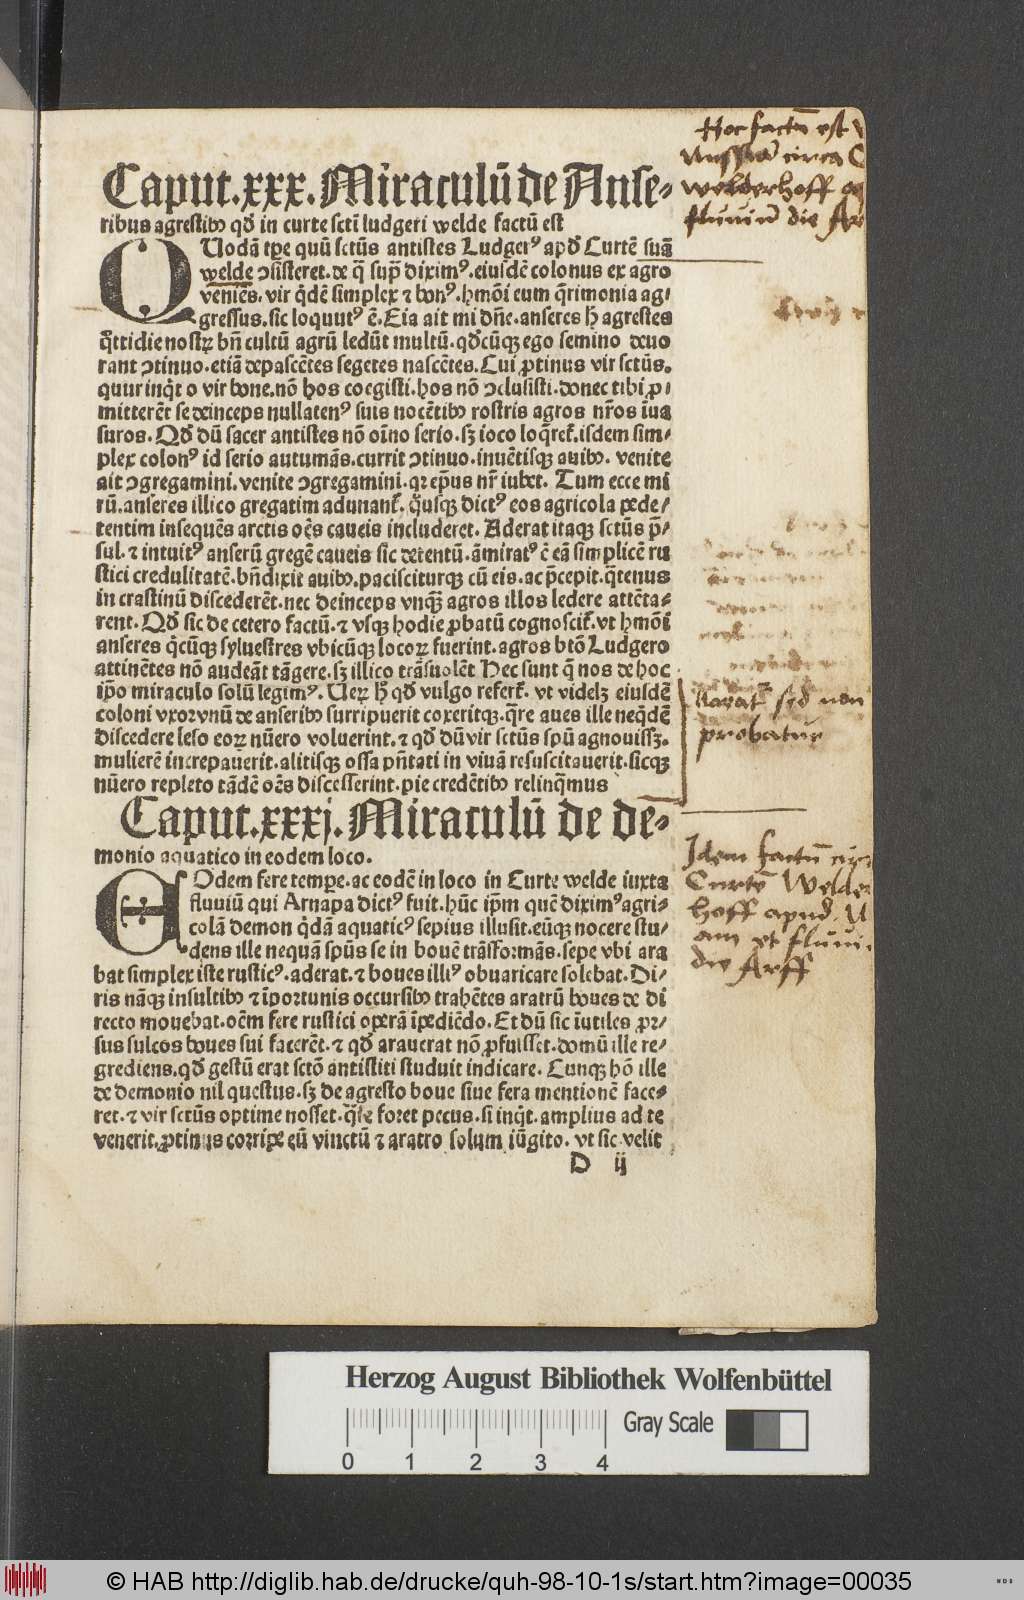 Caput.xxx.Miraculū de Anse⸗
ribus agrestibꝰ qđ in curte sctī ludgeri welde factū est
QUodā tꝑe quū sctūs antistes Ludgerꝰ apđ Curtē suā
welde ↄsisteret. de q̄ sup̄ diximꝰ. eiusdē colonus ex agro
veniēs. vir q̇dē simplex ⁊ bonꝰ. hmōi eum q̄rimonia ag⸗
gressus. sic loquutꝰ ē. Eia ait mi dn̄e. anseres hͥ agrestes
q̊ttidie nostrꝝ bn̄ cultū agrū ledūt multū. qđcūqꝫ ego semino deuo
rant ↄtinuo. etiā depascētes segetes nascētes. Cui ꝓtinus vir sctūs.
quur inq̇t o vir bone. nō hos coegisti. hos nō ↄclusisti. donec tibi ꝓ⸗
mitterēt se deinceps nullatenꝰ suis nocētibꝰ rostris agros nr̄os īua
suros. Qđ dū sacer antistes nō oīno serio. sꝫ ioco loq̄ret᷑. isdem sim⸗
plex colonꝰ id serio autumās. currit ↄtinuo. inuētisqꝫ auibꝰ. venite
ait ↄgregamini. venite ↄgregamini. qꝛ ep̄us nr̄ iubet. Tum ecce mi
rū. anseres illico gregatim adunant᷑. q̊usqꝫ dictꝰ eos agricola pede⸗
tentim insequēs arctis oēs caueis includeret. Aderat itaqꝫ sctūs p̄⸗
sul. ⁊ intuitꝰ anserū gregē caueis sic detentū. āmiratꝰ ē eā simplicē ru
stici credulitatē. bn̄dixit auibꝰ. pacisciturqꝫ cū eis. ac p̄cepit. q̄tenus
in crastinū discederēt. nec deinceps vnqꝫ̄ agros illos ledere attēta⸗
rent. Qđ sic de cetero factū. ⁊ vsqꝫ hodie ꝓbatū cognoscit᷑. vt hmōi
anseres q̇cūqꝫ syluestres vbicūqꝫ locoꝝ fuerint. agros btō Ludgero
attinētes nō audeāt tāgere. sꝫ illico trāsuolēt Hec sunt q̄ nos de hoc
ip̄o miraculo solū legimꝰ. Ueꝝ hͥ qđ vulgo refert᷑. vt videlꝫ eiusdē
coloni vxor vnū de anseribꝰ surripuerit coxeritqꝫ. q̄re aues ille neq̇dē
discedere leso eoꝝ nūero voluerint. ⁊ qđ dū vir sctūs spū agnouissꝫ.
mulierē increpauerit. alitisqꝫ ossa pn̄tati in viuā resuscitauerit. sicqꝫ
nūero repleto tādē oēs discesserint. pie credētibꝰ relinq̄mus
Caput.xxxj. Miraculū de de⸗
monio aquatico in eodem loco.
EOdem fere tempꝑe. ac eodē in loco in Curte welde iuxta
fluuiū qui Arnapa dictꝰ fuit. hūc ip̄m quē diximꝰ agri⸗
colā demon q̇dā aquaticꝰ sepius illusit. eūqꝫ nocere stu⸗
dens ille nequā spūs se in bouē trāsformās. sepe vbi ara
bat simplex iste rusticꝰ. aderat. ⁊ boues illiꝰ obuaricare solebat. Di⸗
ris nāqꝫ insultibꝰ ⁊ īportunis occursibꝰ trahētes aratrū boues de di
recto mouebat. oēm fere rustici operā īpediēdo. Et dū sic īutiles ꝓꝛ⸗
sus sulcos boues sui facerēt. ⁊ qđ arauerat nō ꝓfuisset. domū ille re⸗
grediens. qđ gestū erat sctō antistiti studuit indicare. Cunqꝫ hō ille
de demonio nil questus. sꝫ de agresto boue siue fera mentionē face⸗
ret. ⁊ vir sctūs optime nosset. q̄le foret pecus. si inq̇t. amplius ad te
venerit. ꝓtinus corripe eū vinctū ⁊ aratro solum iūgito. vt sic velit
D ij
Hoc factū est
circa
welderhoff
fluviū die
Narat᷑ sed non
probatur
Idem factū
Curtē Welder
hoff apud
am et fluvi
die Arff
Herzog August Bibliothek Wolfenbüttel
Gray Scale
0 1 2 3 4
© HAB http://diglib.hab.de/drucke/quh-98-10-1s/start.htm?image=00035